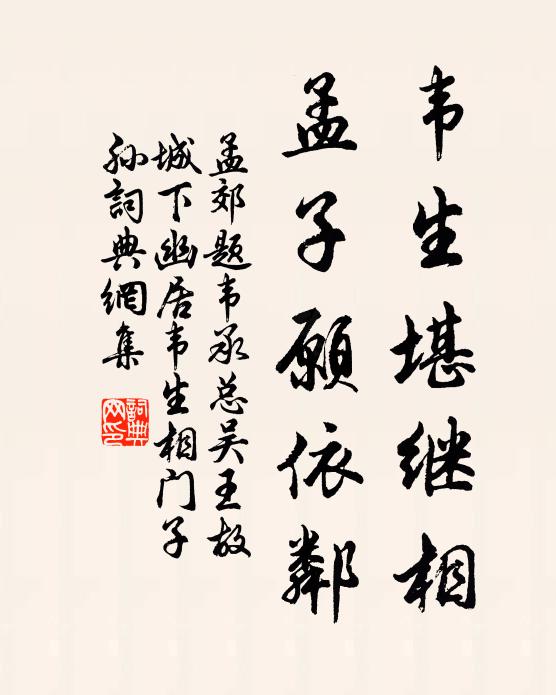 韦生堪继相
孟子願依鄰
孟郊题韦承总吴王故
城下幽居韦生相门子
孙詞典網集
詞典
网印